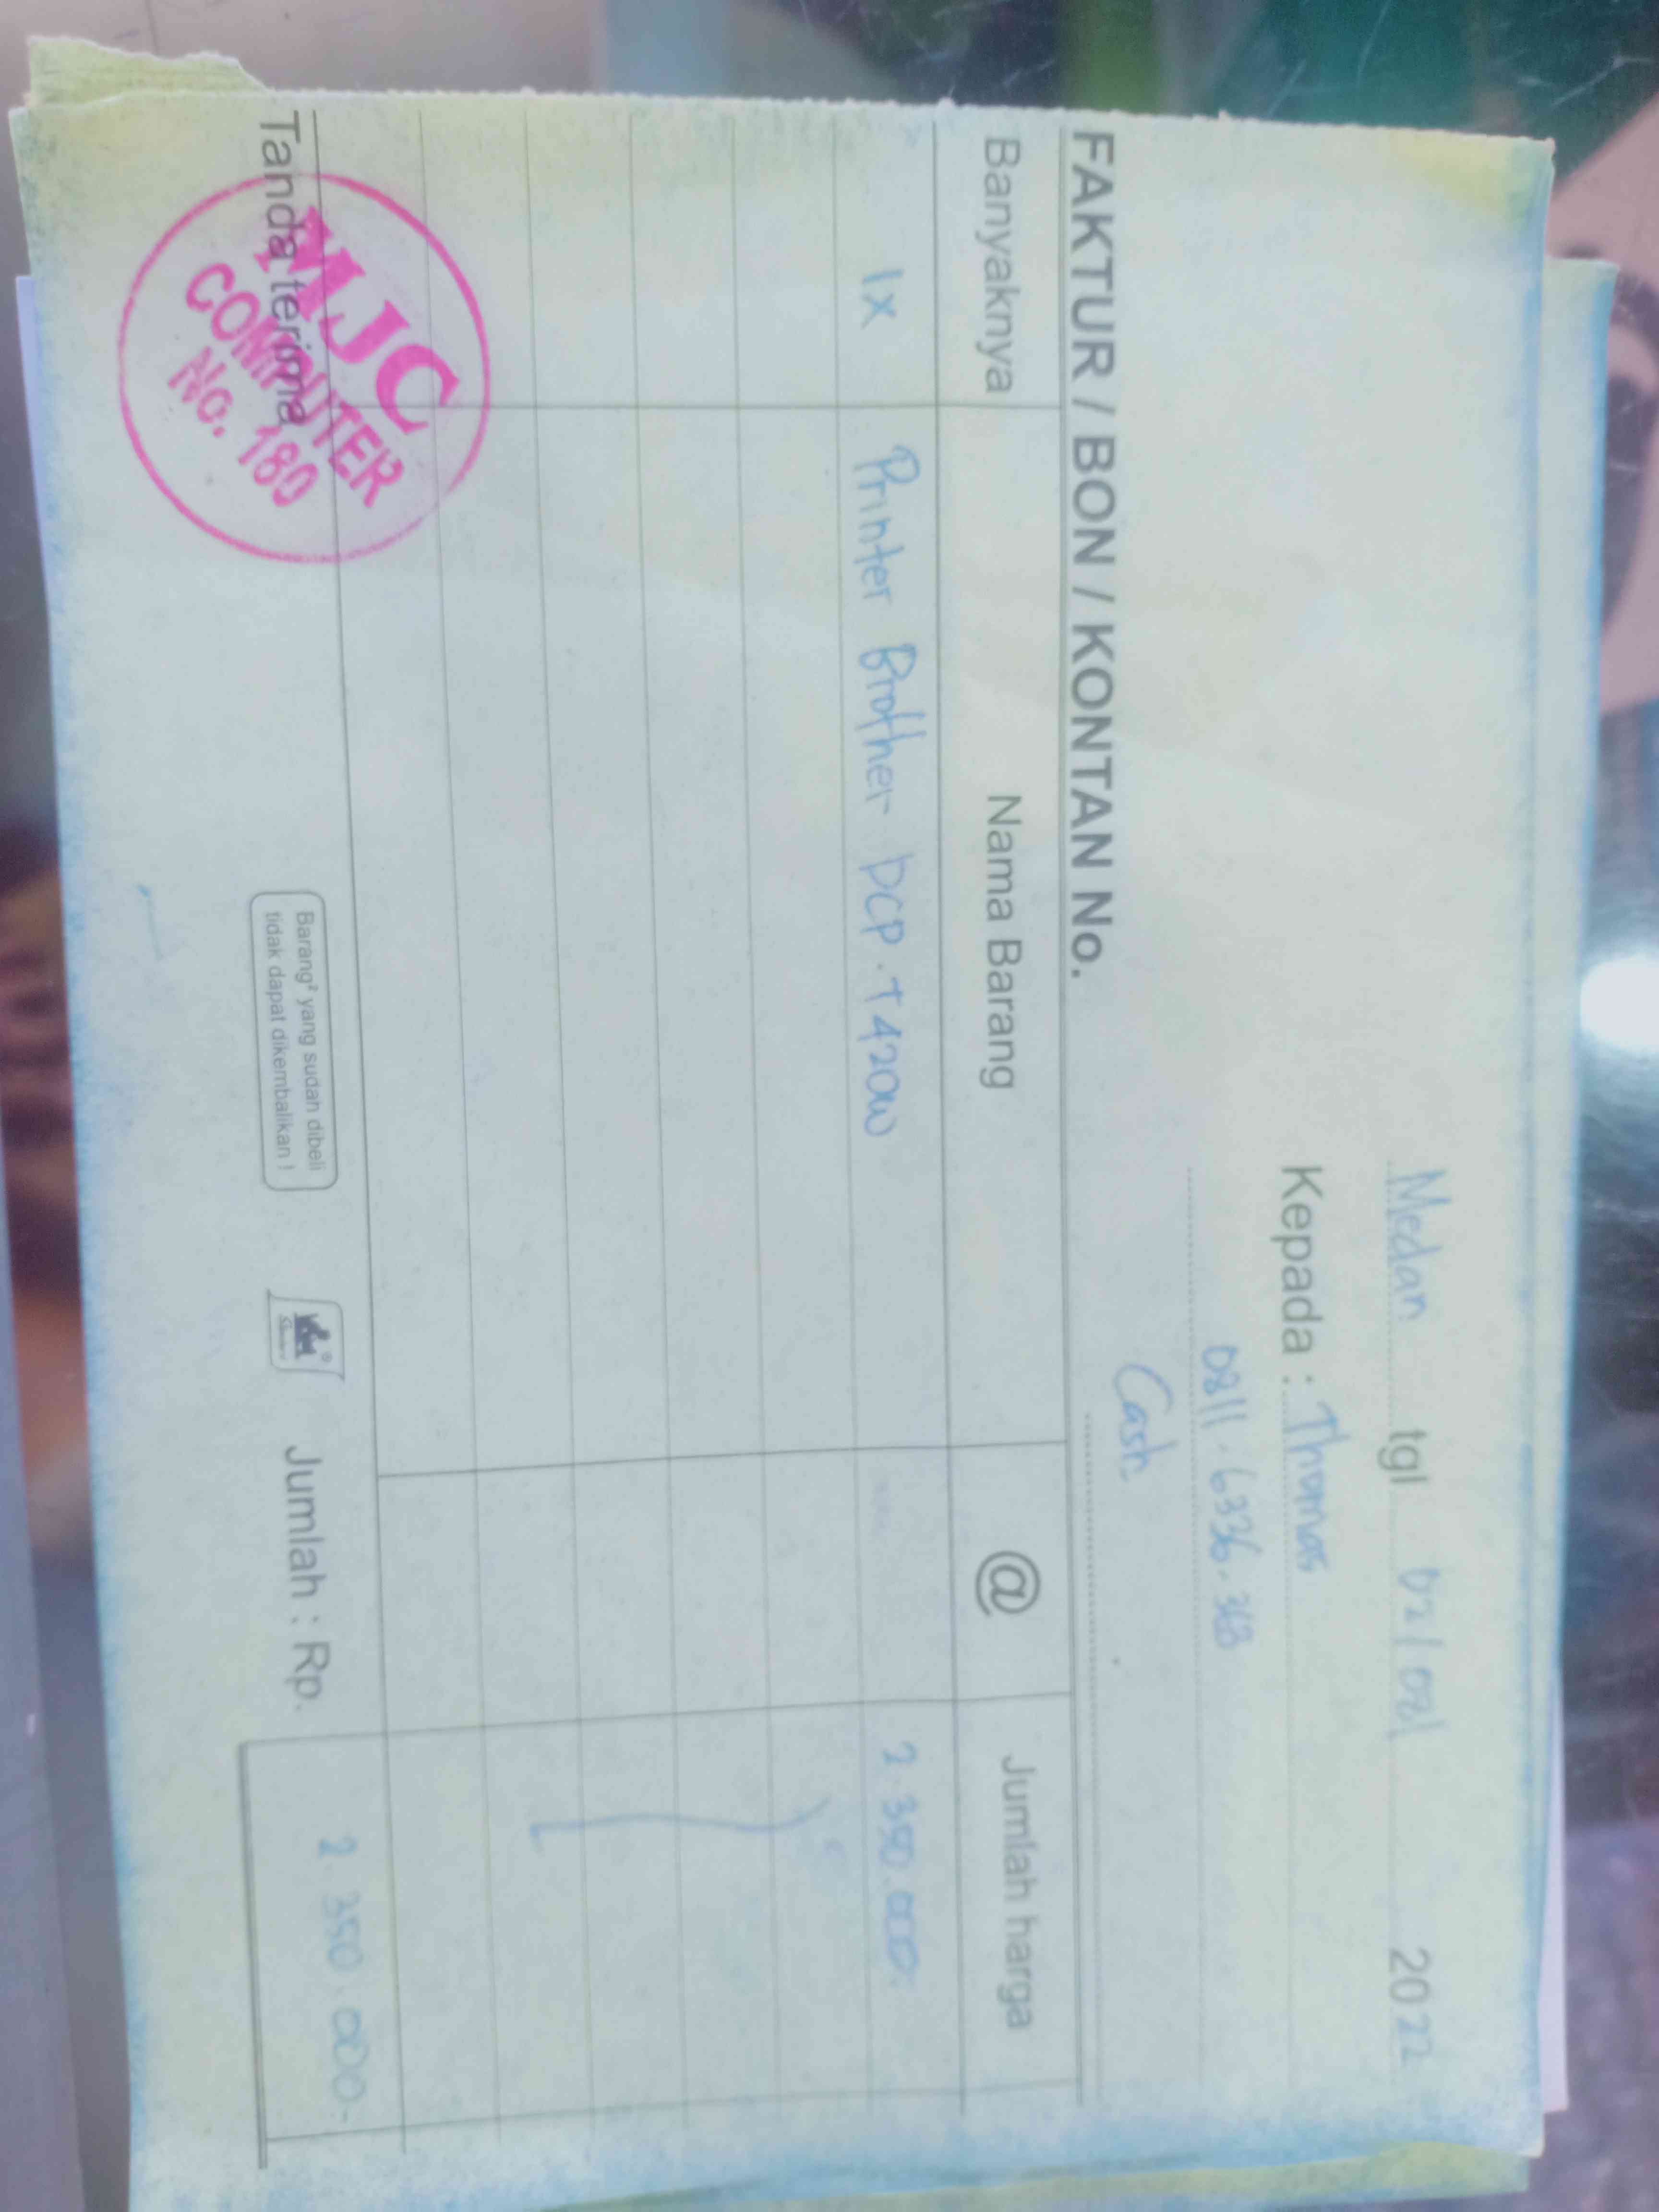 Medan tgl 02/08/ 2022
Kepada : Thomas
0811.6336.368
Cash
FAKTUR / BON / KONTAN No.
Banyaknya Nama Barang @ Jumlah harga
1x Printer Brother DCP.T420W 2.350.000.
Tanda terima
Barang² yang sudah dibeli
tidak dapat dikembalikan !
Jumlah : Rp. 2.350.000-
COMPUTER
No. 180